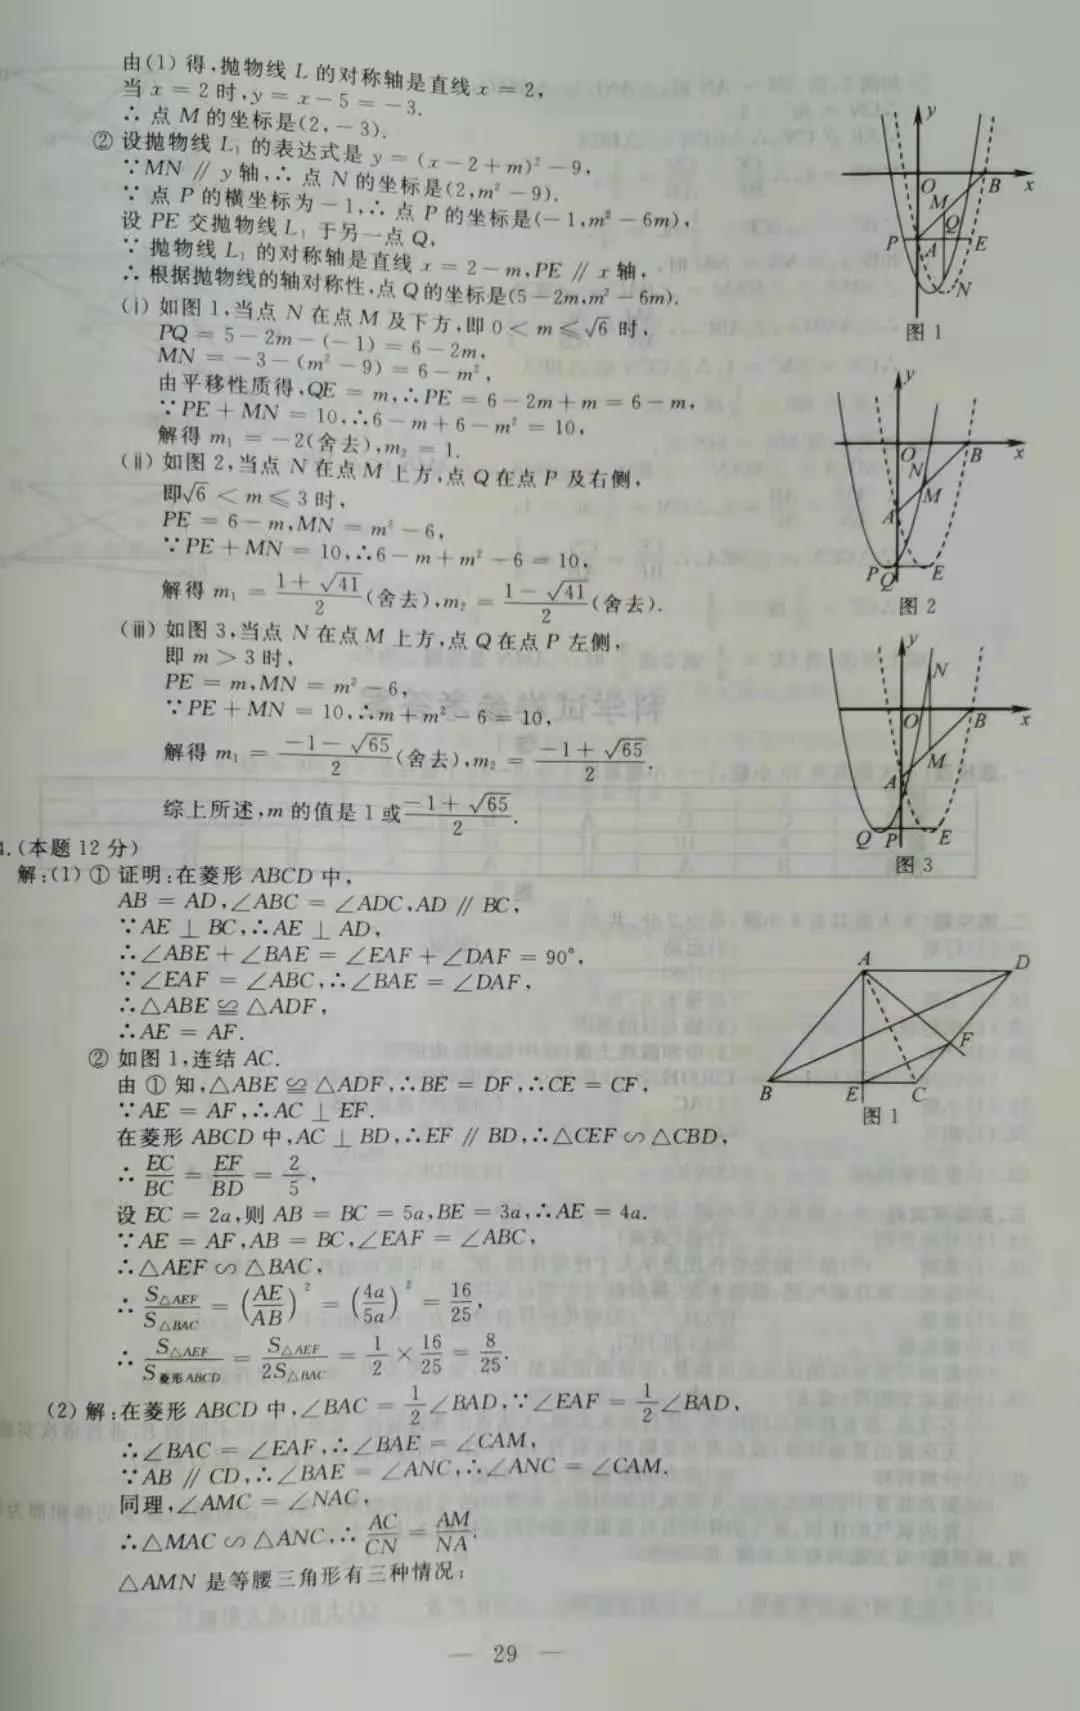 由(1)得,抛物线 L 的对称轴是直线 x = 2,
当 x = 2 时,y = x - 5 = -3.
∴ 点 M 的坐标是(2,-3).
② 设抛物线 L₁ 的表达式是 y = (x - 2 + m)² - 9,
∵ MN ∥ y 轴,∴ 点 N 的坐标是(2,m² - 9).
∵ 点 P 的横坐标为 -1,∴ 点 P 的坐标是(-1,m² - 6m),
设 PE 交抛物线 L₁ 于另一点 Q,
∵ 抛物线 L₁ 的对称轴是直线 x = 2 - m,PE ∥ x 轴,
∴ 根据抛物线的轴对称性,点 Q 的坐标是(5 - 2m,m² - 6m).
(ⅰ) 如图 1,当点 N 在点 M 及下方,即 0 < m ≤ √6 时,
PQ = 5 - 2m - (-1) = 6 - 2m,
MN = -3 - (m² - 9) = 6 - m²,
由平移性质得,QE = m,∴ PE = 6 - 2m + m = 6 - m,
∵ PE + MN = 10,∴ 6 - m + 6 - m² = 10,
解得 m₁ = -2(舍去),m₂ = 1.
(ⅱ) 如图 2,当点 N 在点 M 上方,点 Q 在点 P 及右侧,
即 √6 < m ≤ 3 时,
PE = 6 - m,MN = m² - 6,
∵ PE + MN = 10,∴ 6 - m + m² - 6 = 10,
解得 m₁ = (1 + √41)/2 (舍去),m₂ = (1 - √41)/2 (舍去).
(ⅲ) 如图 3,当点 N 在点 M 上方,点 Q 在点 P 左侧,
即 m > 3 时,
PE = m,MN = m² - 6,
∵ PE + MN = 10,∴ m + m² - 6 = 10,
解得 m₁ = (-1 - √65)/2 (舍去),m₂ = (-1 + √65)/2.
综上所述,m 的值是 1 或 (-1 + √65)/2.
y
O
B
x
M
Q
P
A
E
N
图 1
y
O
B
x
N
M
A
P
Q
E
图 2
y
N
O
B
x
M
A
Q
P
E
图 3
4.(本题 12 分)
解:(1) ① 证明:在菱形 ABCD 中,
AB = AD,∠ABC = ∠ADC,AD ∥ BC,
∵ AE ⊥ BC,∴ AE ⊥ AD,
∴ ∠ABE + ∠BAE = ∠EAF + ∠DAF = 90°,
∵ ∠EAF = ∠ABC,∴ ∠BAE = ∠DAF,
∴ △ABE ≌ △ADF,
∴ AE = AF.
② 如图 1,连结 AC.
由 ① 知,△ABE ≌ △ADF,∴ BE = DF,∴ CE = CF,
∵ AE = AF,∴ AC ⊥ EF.
在菱形 ABCD 中,AC ⊥ BD,∴ EF ∥ BD,∴ △CEF ∽ △CBD,
∴ EC/BC = EF/BD = 2/5,
设 EC = 2a,则 AB = BC = 5a,BE = 3a,∴ AE = 4a.
∵ AE = AF,AB = BC,∠EAF = ∠ABC,
∴ △AEF ∽ △BAC,
∴ S△AEF/S△BAC = (AE/AB)² = (4a/5a)² = 16/25,
∴ S△AEF/S菱形ABCD = S△AEF/2S△BAC = 1/2 × 16/25 = 8/25.
(2) 解:在菱形 ABCD 中,∠BAC = 1/2∠BAD,∵ ∠EAF = 1/2∠BAD,
∴ ∠BAC = ∠EAF,∴ ∠BAE = ∠CAM,
∵ AB ∥ CD,∴ ∠BAE = ∠ANC,∴ ∠ANC = ∠CAM,
同理,∠AMC = ∠NAC,
∴ △MAC ∽ △ANC,∴ AC/CN = AM/NA.
△AMN 是等腰三角形有三种情况:
A
D
F
B
E
C
图 1
— 29 —